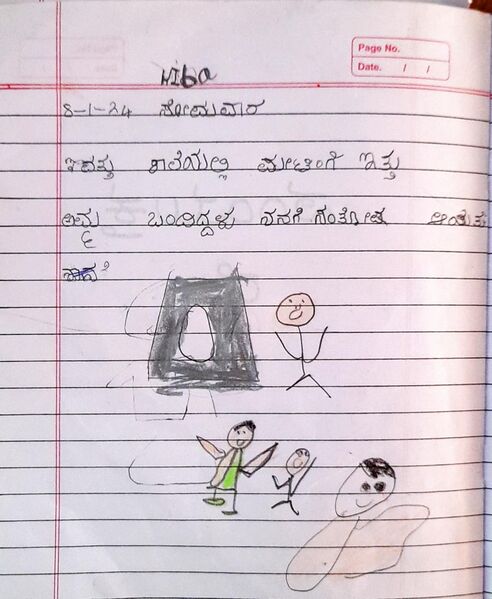 Page No.
Date. / /
Hiba
8-1-24 ಸೋಮವಾರ
ಇವತ್ತು ಶಾಲೆಯಲ್ಲಿ ಮೀಟಿಂಗೆ ಇತ್ತು
ಅಮ್ಮ ಬಂದಿದ್ದಳು ನನಗೆ ಸಂತೋಷ